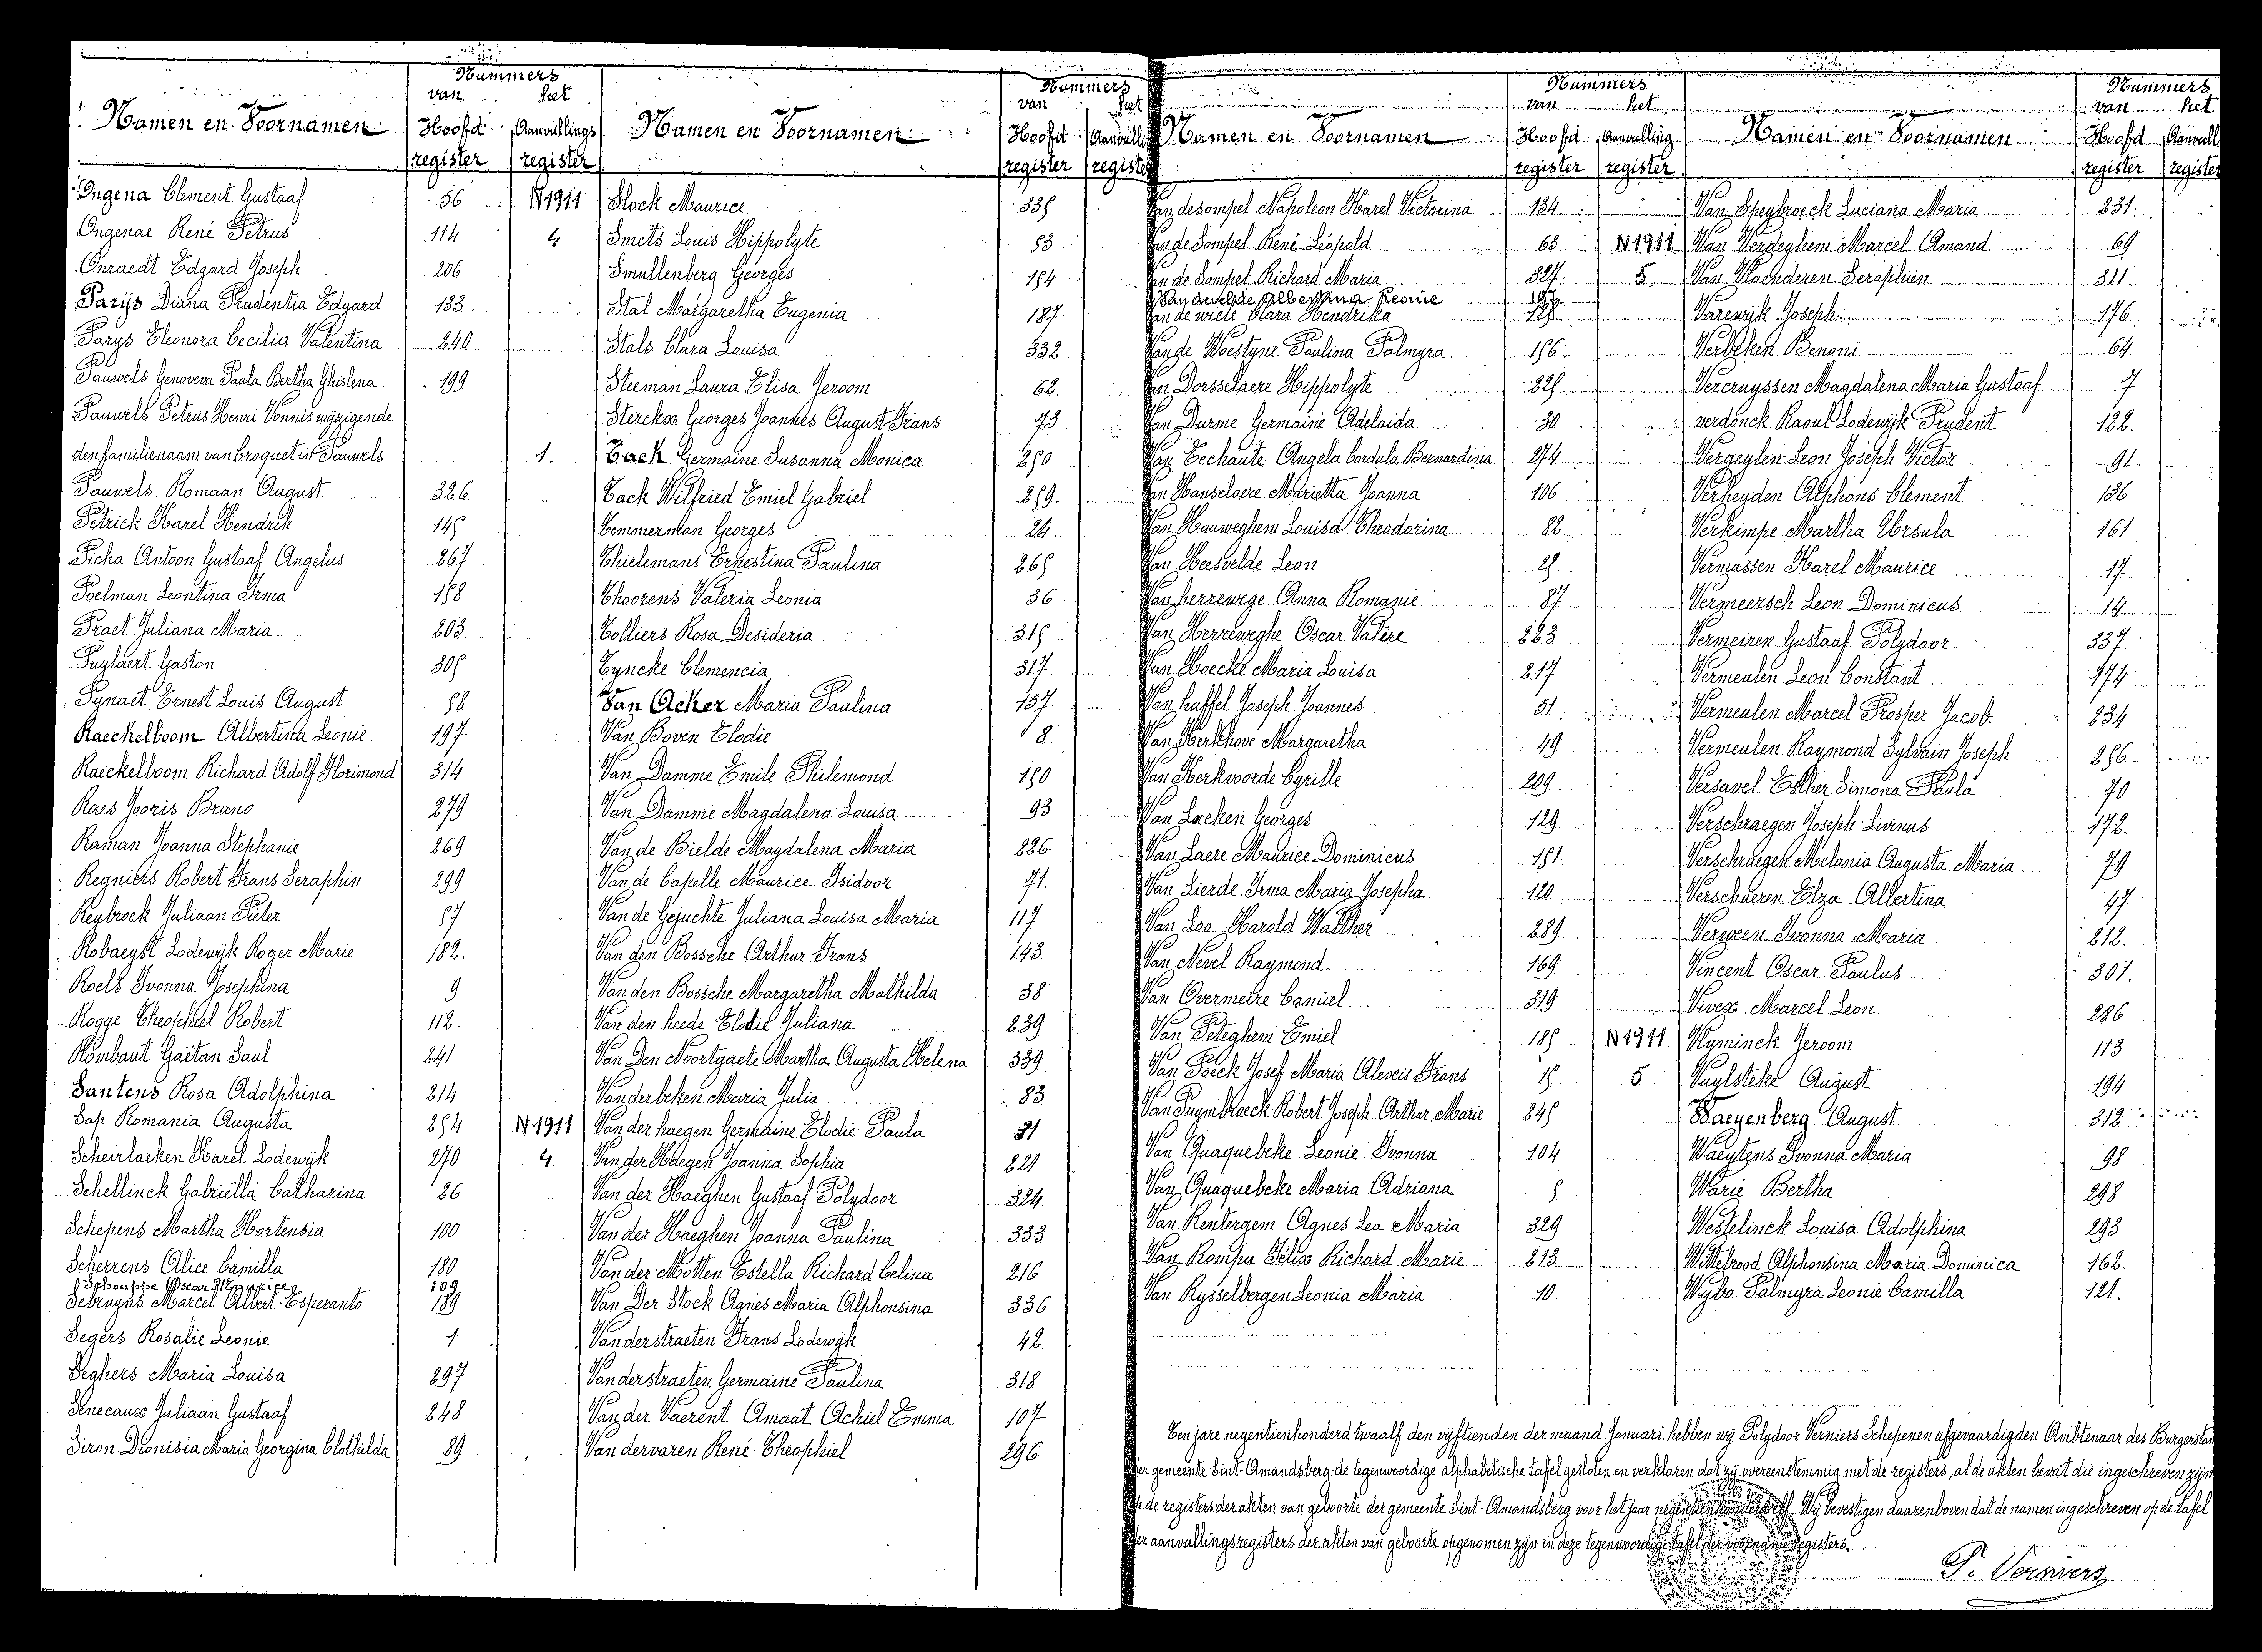 Nummers
van het
Namen en Voornamen Hoofd Aanvullings
register register
Ongena Clement Gustaaf 56 N1911
Ongenae René Petrus 114 4
Onraedt Edgard Joseph 206
Parijs Diana Prudentia Edgard 133
Parys Eleonora Cecilia Valentina 240
Pauwels Genoveva Paula Bertha Ghislena 199
Pauwels Petrus Henri Vonnis wijzigende
den familienaam van Croquet in Pauwels 1.
Pauwels Romaan August 326
Petrick Karel Hendrik 145
Picha Antoon Gustaaf Angelus 267
Poelman Leontina Irma 158
Praet Juliana Maria 203
Puylaert Gaston 305
Pynaet Ernest Louis August 58
Raeckelboom Albertina Leonie 197
Raeckelboom Richard Adolf Florimond 314
Raes Joris Bruno 279
Raman Joanna Stephanie 269
Regniers Robert Frans Seraphin 299
Reybrock Juliaan Pieter 57
Robaeyst Lodewijk Roger Marie 182.
Roels Ivonna Josephina 9
Rogge Theophiel Robert 112.
Rombaut Gaëtan Paul 241
Santens Rosa Adolphina 214
Sap Romania Augusta 254 N1911
Scheirlaeken Karel Lodewijk 270 4
Schellinck Gabriëlla Catharina 26
Schepens Martha Hortensia 100
Scherrens Alice Camilla 180
Schouppe Oscar Maurice 109
Sebruyns Marcel Albert Esperanto 189
Segers Rosalie Leonie 1
Seghers Maria Louisa 297
Senecaux Juliaan Gustaaf 248
Siron Dionisia Maria Georgina Clothilda 89
Nummers
van het
Namen en Voornamen Hoofd
register
Slock Maurice 335
Smets Louis Hippolyte 53
Smullenberg Georges 154
Stal Margaretha Eugenia 187
Stals Clara Louisa 332
Steeman Laura Elisa Jeroom 62.
Sterckx Georges Joannes August Frans 73
Tack Germaine Susanna Monica 250
Tack Wilfried Emiel Gabriel 259.
Temmerman Georges 24
Thielemans Ernestina Paulina 265
Thoorens Valeria Leonia 36
Tolliers Rosa Desideria 315
Tyncke Clemencia 317
Van Acker Maria Paulina 157
Van Boven Elodie 8
Van Damme Emile Philemond 150
Van Damme Magdalena Louisa 93
Van de Bielde Magdalena Maria 226
Van de Capelle Maurice Isidoor 71.
Van de Gejuchte Juliana Louisa Maria 117
Van den Bossche Arthur Frans 143
Van den Bossche Margaretha Mathilda 38
Van den heede Elodie Juliana 239
Van Den Noortgaete Martha Augusta Helena 339
Vanderbeken Maria Julia 83
Van der haegen Germaine Elodie Paula 21
Van der Haegen Joanna Sophia 221
Van der Haeghen Gustaaf Polydoor 324
Van der Haeghen Joanna Paulina 333
Van der Motten Estella Richard Celina 216
Van Der Stock Agnes Maria Alphonsina 336
Vanderstraeten Frans Lodewijk 42.
Vanderstraeten Germaine Paulina 318
Van der Vaerent Amaat Achiel Emma 107
Van dervaren René Theophiel 296
Nummers
van het
Namen en Voornamen Hoofd Aanvulling
register register
Van desompel Napoleon Karel Victorina 134
Van de Sompel René Léopold 63 N1911
Van de Sompel Richard Maria 327. 5
Van develde Albertina Leonie
Van de wiele Clara Hendrika
Van de Woestyne Paulina Palmyra 156
Van Dorsselaere Hippolyte 325
Van Durme Germaine Adelaida 30
Van Eechaute Angela Cordula Bernardina 274
Van Hanselaere Marietta Joanna 106
Van Hauweghem Louisa Theodorina 82
Van Heesvelde Leon 25
Van herrewege Anna Romanie 87
Van Herreweghe Oscar Valère 223
Van Hoecke Maria Louisa 217
Van huffel Joseph Joannes 51
Van Kerkhove Margaretha 49
Van Kerkvoorde Cyrille 209.
Van Laeken Georges 129
Van Laere Maurice Dominicus 151
Van Lierde Irma Maria Josepha 120
Van Loo Harold Walther 289
Van Nevel Raymond 169
Van Overmeire Camiel 319
Van Peteghem Emiel 185 N1911
Van Poeck Josef Maria Alexis Frans 15 5
Van Puymbroeck Robert Joseph Arthur Marie 245
Van Quaquebeke Leonie Ivonna 104
Van Quaquebeke Maria Adriana 5
Van Rentergem Agnes Lea Maria 329
Van Rompu Félix Richard Marie 213
Van Rysselbergen Leonia Maria 10
Nummers
van het
Namen en Voornamen Hoofd Aanvull
register register
Van Speybroeck Luciana Maria 231.
Van Verdeghem Marcel Amand 69
Van Waenderen Seraphien 311
Varewijk Joseph 176
Verbeken Benoni 64
Vercruyssen Magdalena Maria Gustaaf 7
verdonck Raoul Lodewijk Prudent 122.
Vergeylen Leon Joseph Victor 91
Verheyden Alphons Clement 136
Verkimpe Martha Ursula 161
Vermassen Karel Maurice 17
Vermeersch Leon Dominicus 14
Vermeiren Gustaaf Polydoor 337.
Vermeulen Leon Constant 174
Vermeulen Marcel Prosper Jacob 234
Vermeulen Raymond Sylvain Joseph 256
Versavel Esther Simona Paula 70
Verschraegen Joseph Livinus 172.
Verschraegen Melania Augusta Maria 79
Verschueren Elza Albertina 47
Verween Ivonna Maria 212.
Vincent Oscar Paulus 301.
Vivex Marcel Leon 286
Vyminck Jeroom 113
Vuylsteke August 194
Waeyenberg August 312
Waeytens Ivonna Maria 98
Warie Bertha 298
Westelinck Louisa Adolphina 293
Wittebrood Alphonsina Maria Dominica 162.
Wybo Palmyra Leonie Camilla 121.
Ten jare negentienhonderd twaalf den vijftienden der maand Januari hebben wij Polydoor Verniers Schepenen afgevaardigden Ambtenaar des Burgerstan
der gemeente Sint-Amandsberg de tegenwoordige alphabetische tafel gesloten en verklaren dat zij overeenstemmig met de registers, al de akten bevat die ingeschreven zijn
op de registers der akten van geboorte der gemeente Sint-Amandsberg voor het jaar negentienhonderd elf. Wij bevestigen daarenboven dat de namen ingeschreven op de tafel
der aanvullingsregisters der akten van geboorte opgenomen zijn in deze tegenwoordige tafel der voorname registers.
P. Verniers